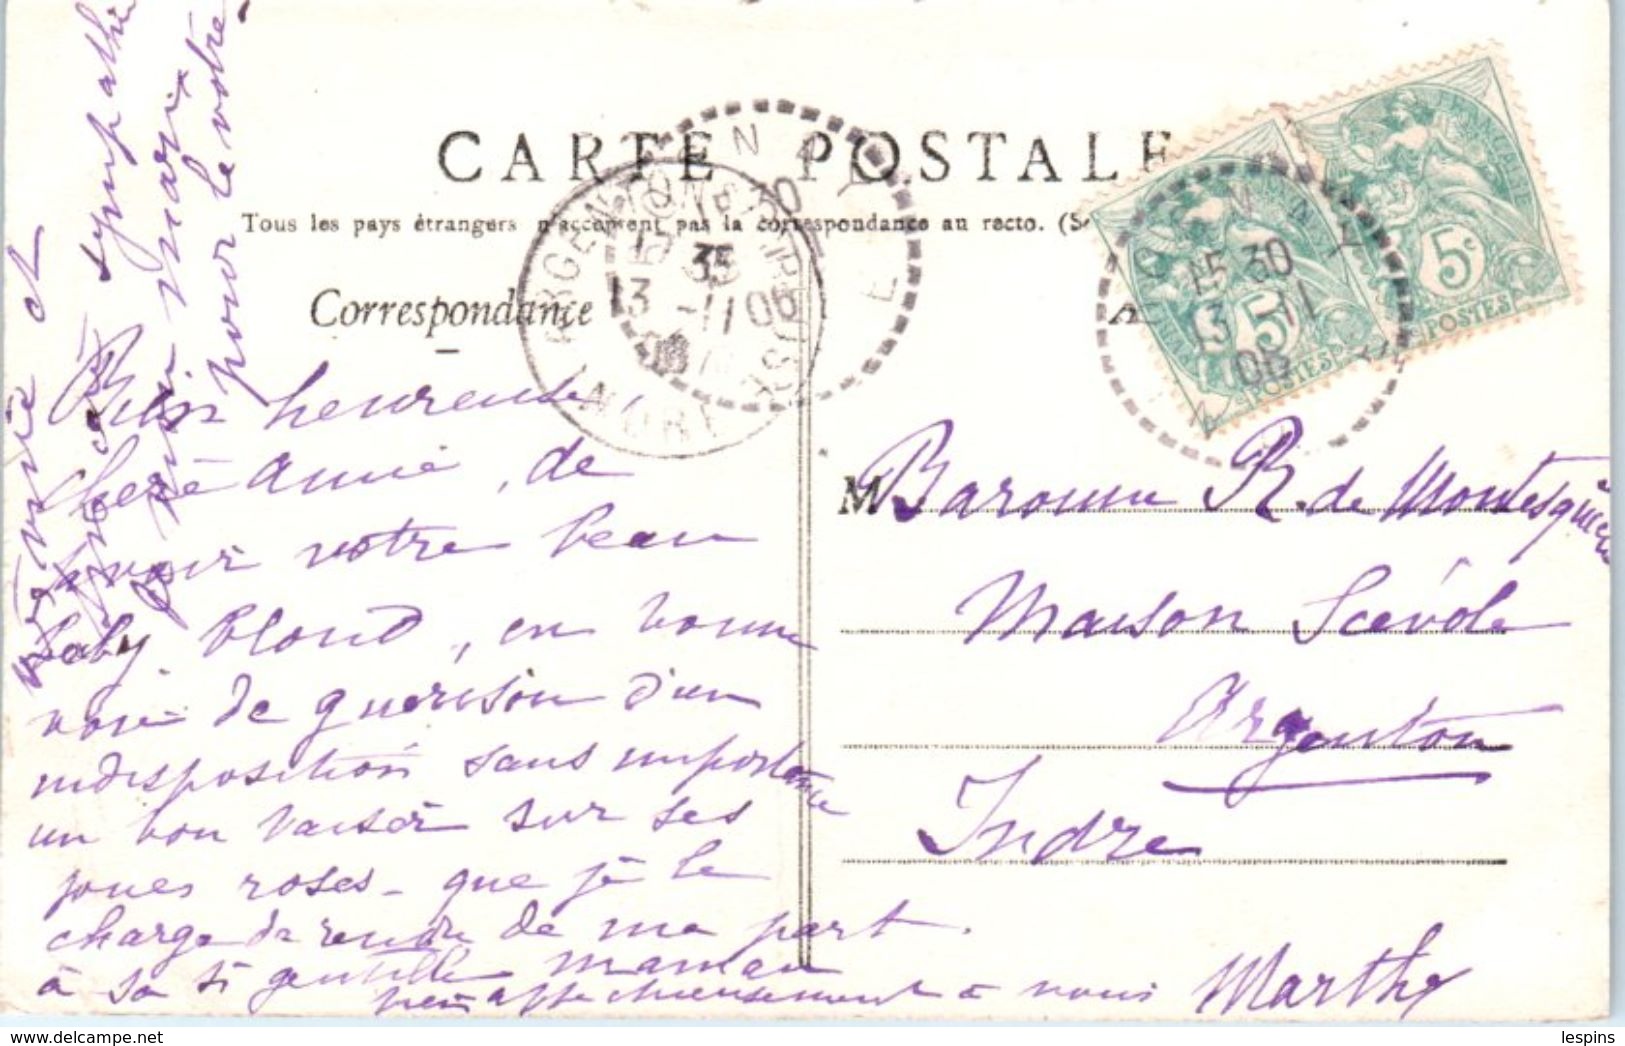 CARTE POSTALE
Tous les pays étrangers n'acceptent pas la correspondance au recto. (Se
Correspondance
ARGENTON-SUR-CREUSE
INDRE
35
13 -11
06
15 30
13 -11
06
5c
POSTES
5
POSTES
Bien heureuse,
chère amie, de
savoir votre beau
baby blond, en bonne
voie de guérison d'un
indisposition sans importance
un bon baiser sur ses
joues roses - que je le
charge de rendre de ma part
à sa si gentille maman
bien affectueusement à vous Marthe
amitié et
sympathie
mari
pour le votre
M Baronne R. de Montesquieu
Maison Scévole
Argenton
Indre
lespins